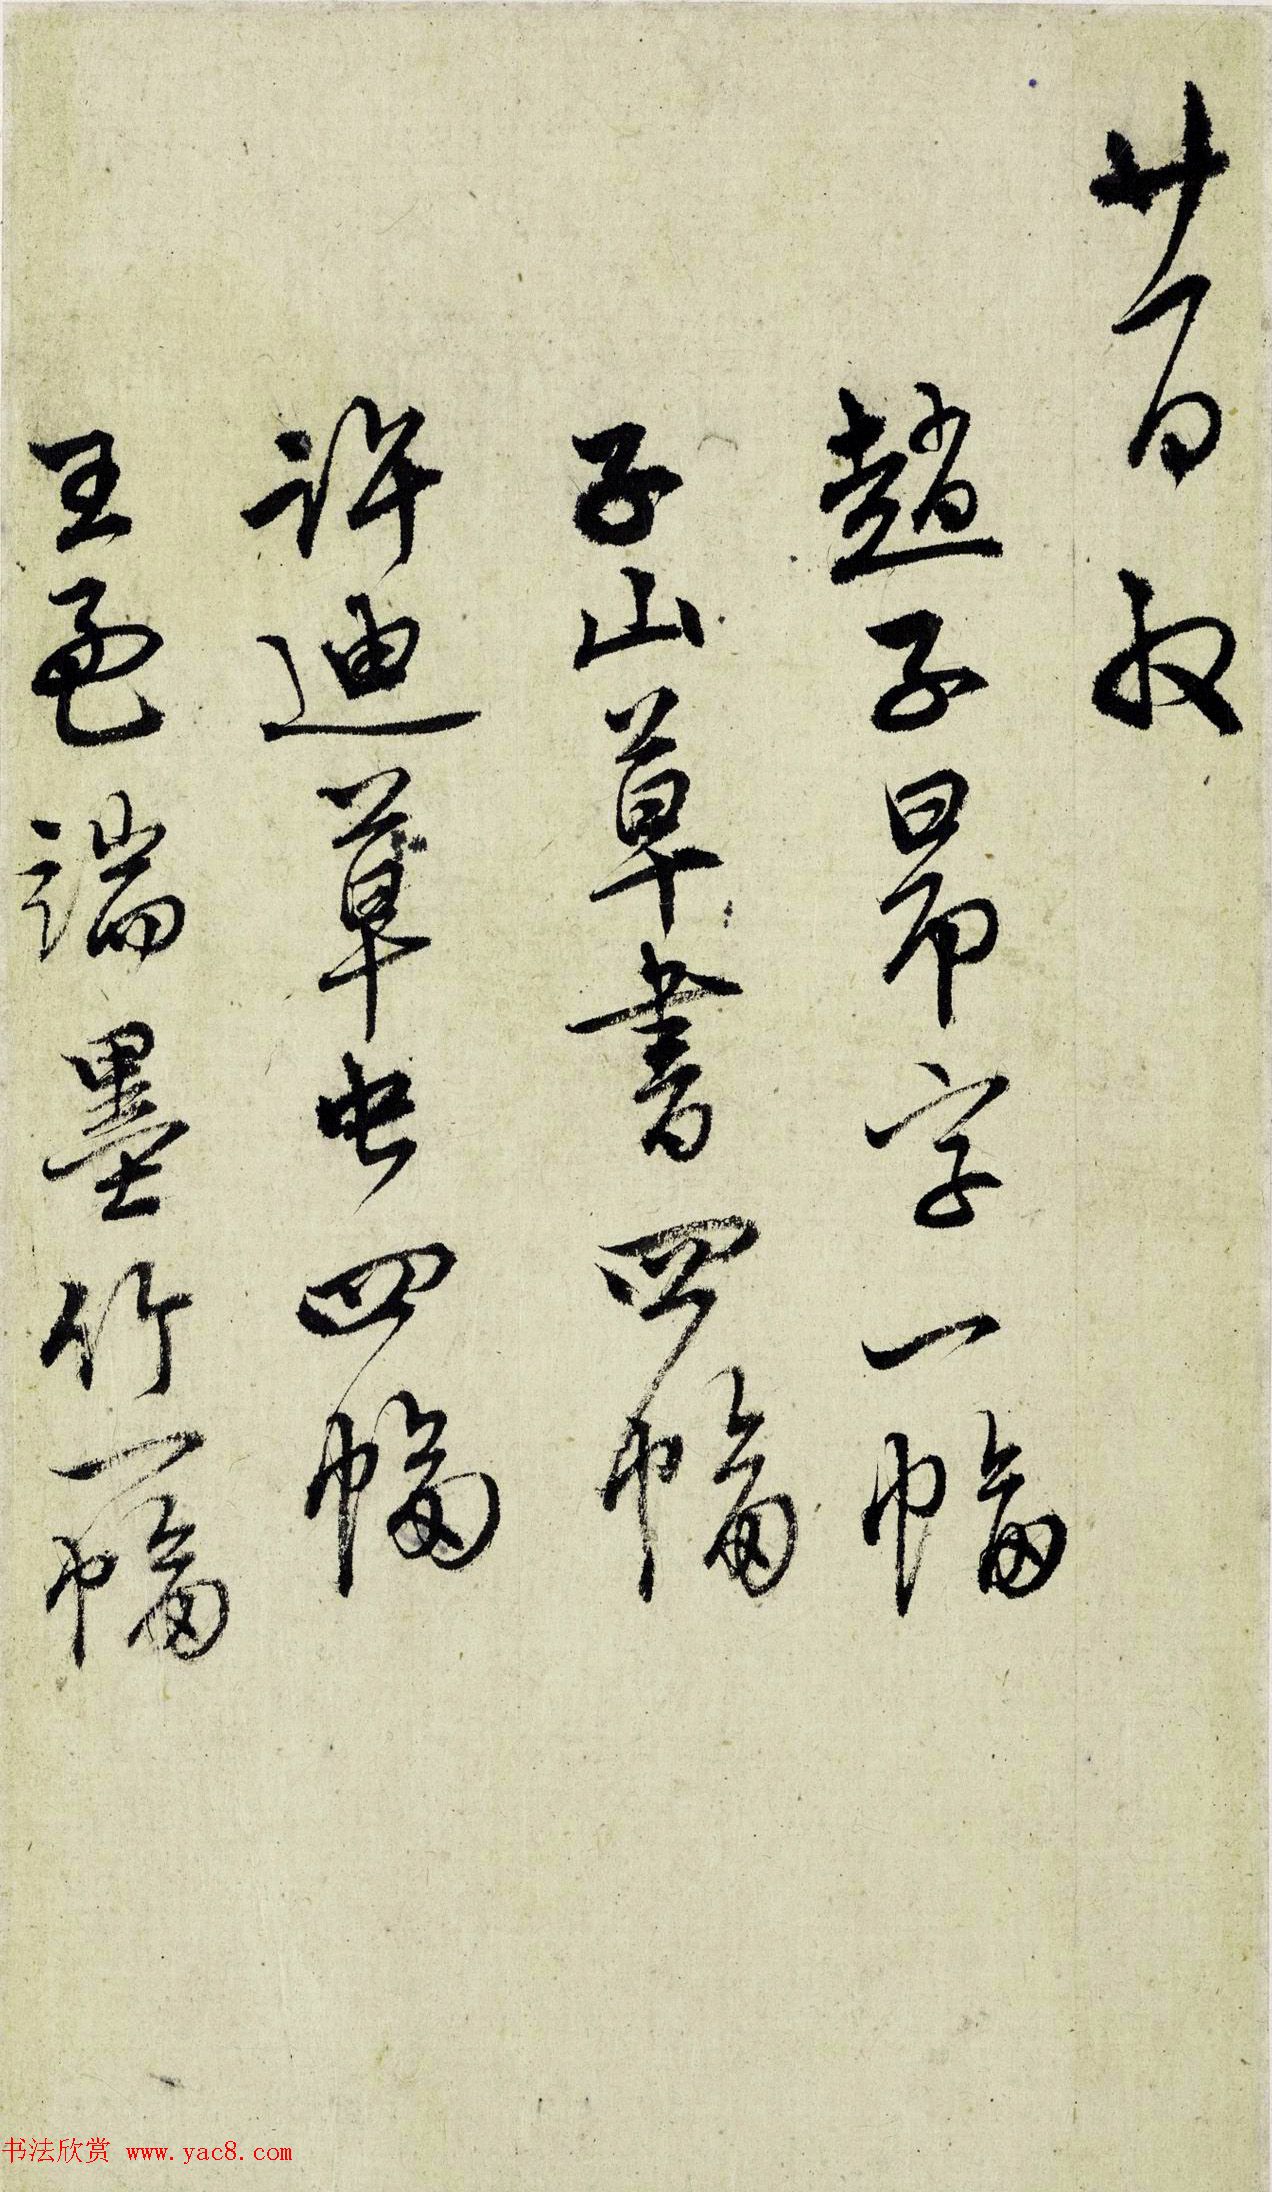 廿一日收
趙子昂字一幅
子山草書四幅
許迪草虫四幅
王孟端墨竹一幅
书法欣赏 www.yac8.com